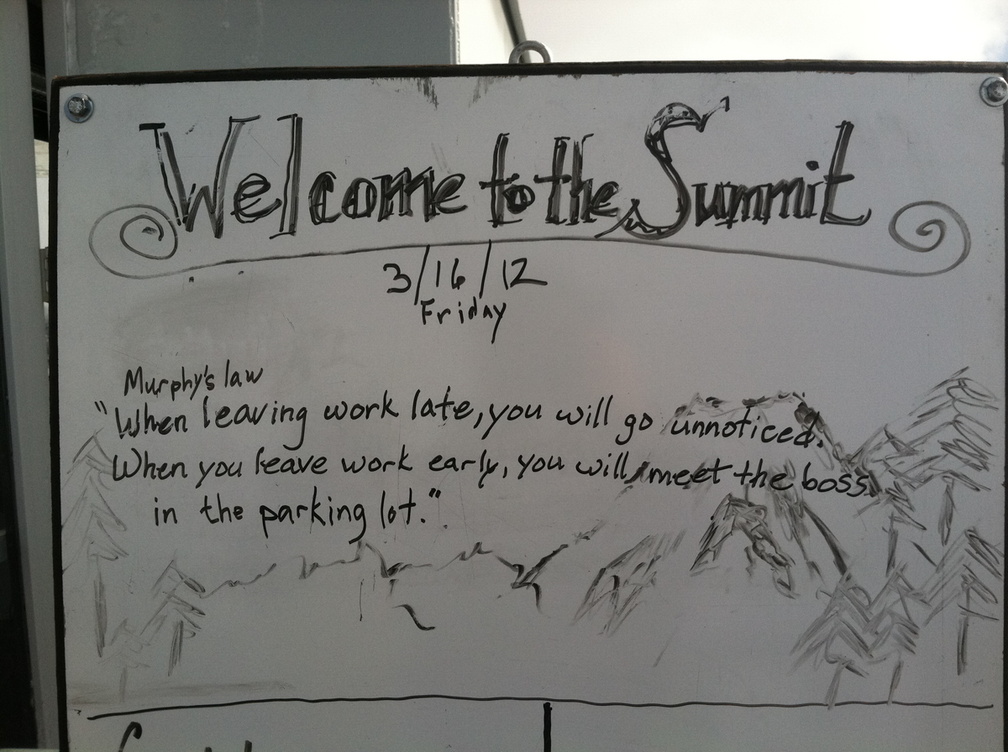 Welcome to the Summit
3/16/12
Friday
Murphy's law
"When leaving work late, you will go unnoticed.
When you leave work early, you will meet the boss
in the parking lot."